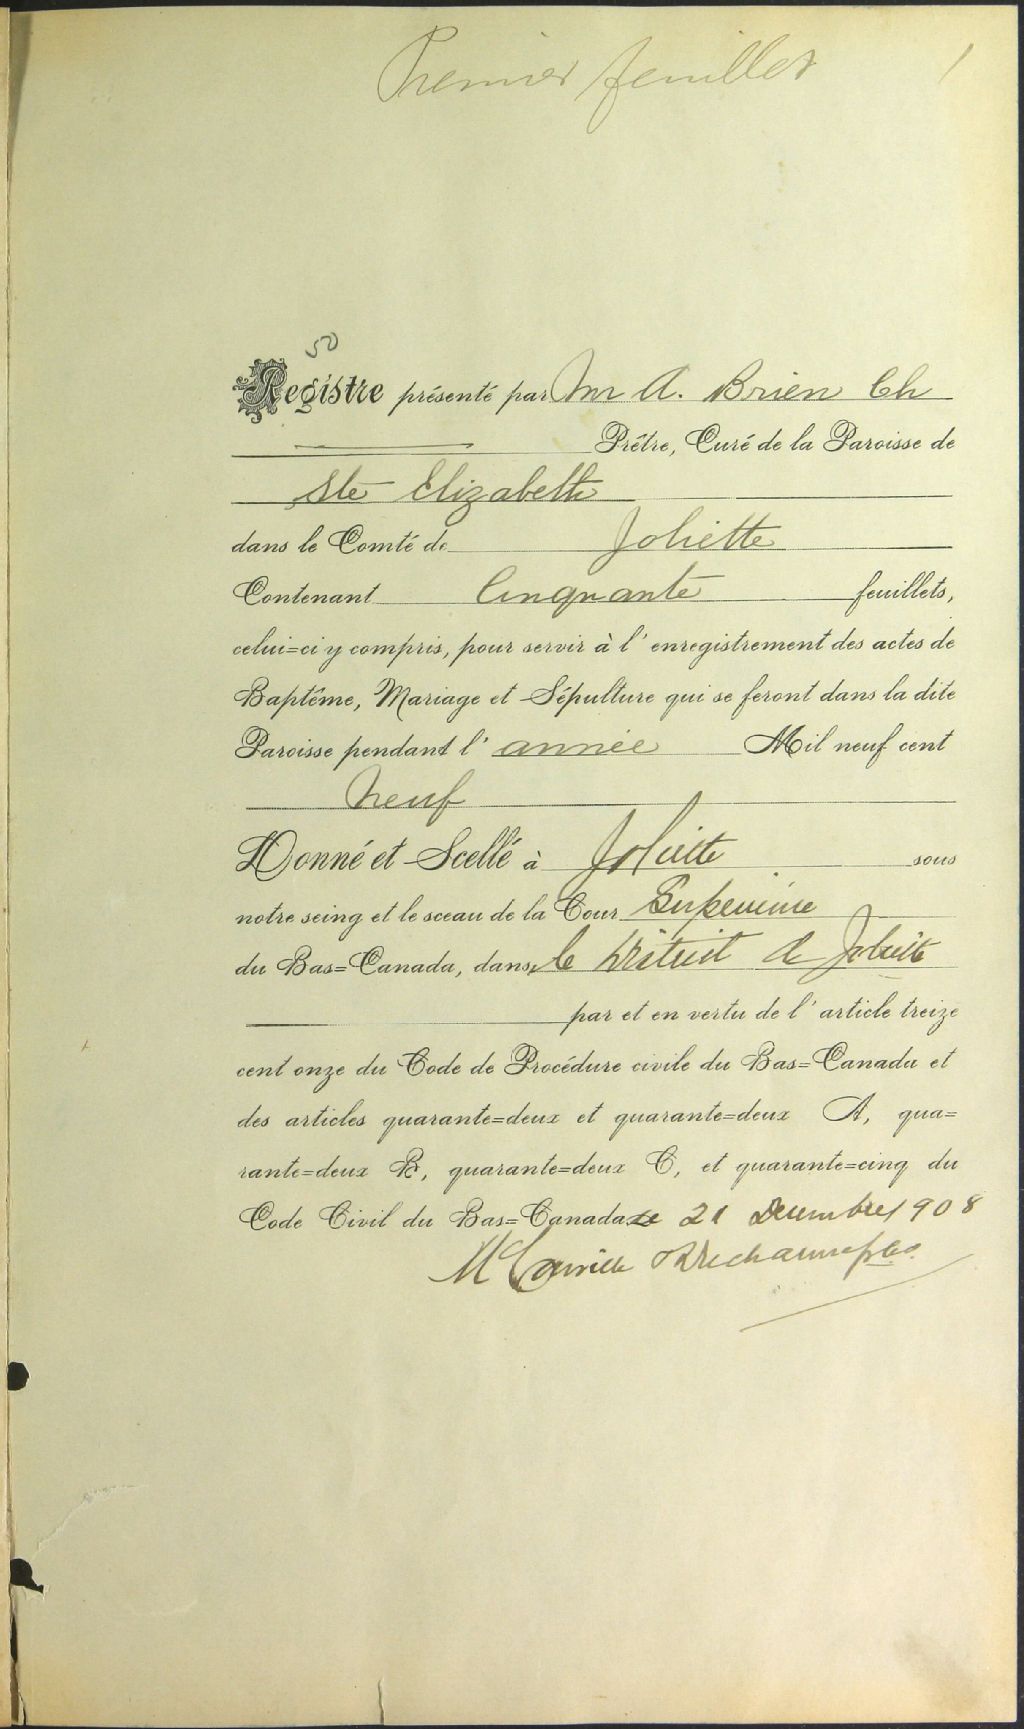 Premier feuillet 1
50
Registre présenté par Mr A. Brien Ch
Prêtre, Curé de la Paroisse de
Ste Elizabeth
dans le Comté de Joliette
Contenant Cinquante feuillets,
celui=ci y compris, pour servir à l'enregistrement des actes de
Baptême, Mariage et Sépulture qui se feront dans la dite
Paroisse pendant l'année Mil neuf cent
neuf
Donné et Scellé à Joliette sous
notre seing et le sceau de la Cour Supérieure
du Bas=Canada, dans le District de Joliette
par et en vertu de l'article treize
cent onze du Code de Procédure civile du Bas=Canada et
des articles quarante=deux et quarante=deux A, qua=
rante=deux B, quarante=deux C, et quarante=cinq du
Code Civil du Bas=Canada le 21 Decembre 1908